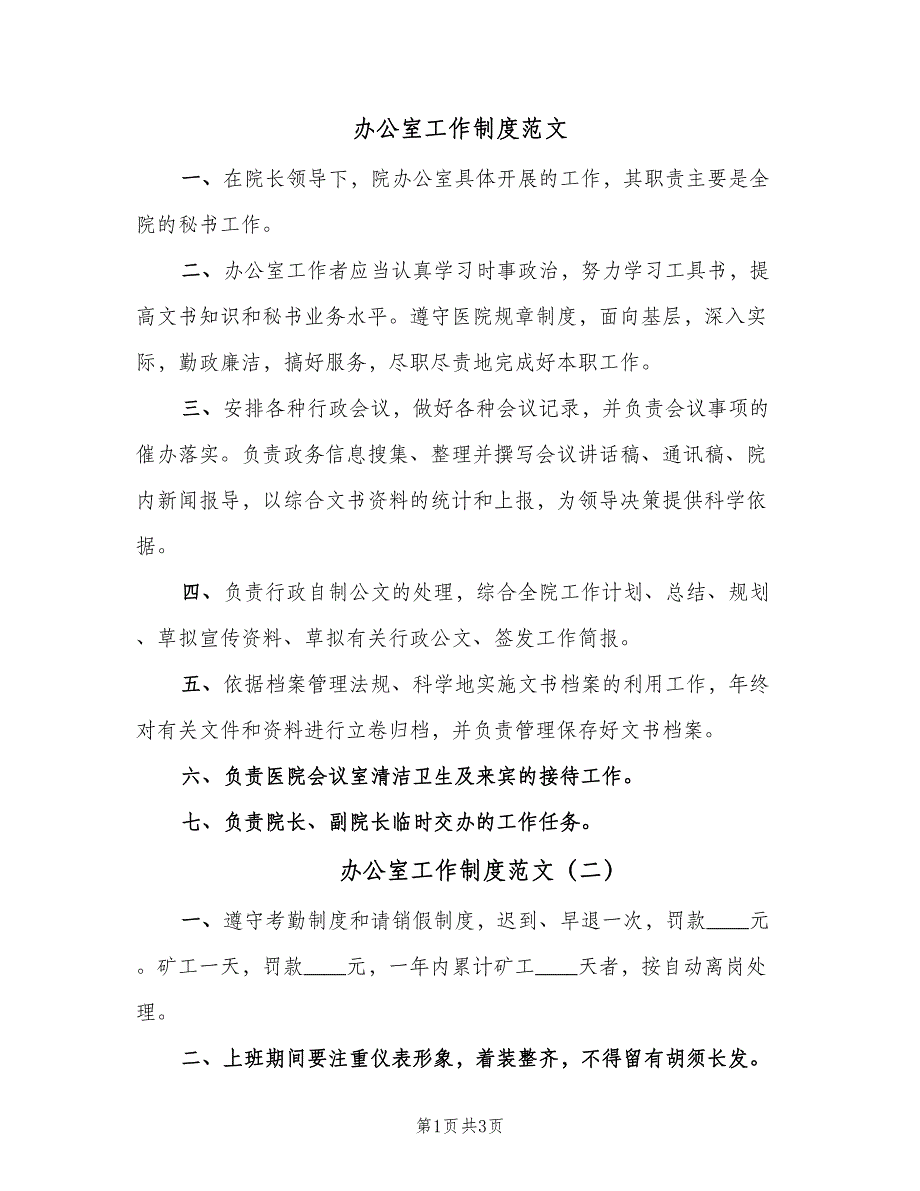 办公室工作制度范文
一、在院长领导下，院办公室具体开展的工作，其职责主要是全
院的秘书工作。
二、办公室工作者应当认真学习时事政治，努力学习工具书，提
高文书知识和秘书业务水平。遵守医院规章制度，面向基层，深入实
际，勤政廉洁，搞好服务，尽职尽责地完成好本职工作。
三、安排各种行政会议，做好各种会议记录，并负责会议事项的
催办落实。负责政务信息搜集、整理并撰写会议讲话稿、通讯稿、院
内新闻报导，以综合文书资料的统计和上报，为领导决策提供科学依
据。
四、负责行政自制公文的处理，综合全院工作计划、总结、规划
、草拟宣传资料、草拟有关行政公文、签发工作简报。
五、依据档案管理法规、科学地实施文书档案的利用工作，年终
对有关文件和资料进行立卷归档，并负责管理保存好文书档案。
六、负责医院会议室清洁卫生及来宾的接待工作。
七、负责院长、副院长临时交办的工作任务。
办公室工作制度范文（二）
一、遵守考勤制度和请销假制度，迟到、早退一次，罚款____元
。矿工一天，罚款____元，一年内累计矿工____天者，按自动离岗处
理。
二、上班期间要注重仪表形象，着装整齐，不得留有胡须长发。
第1页 共3页